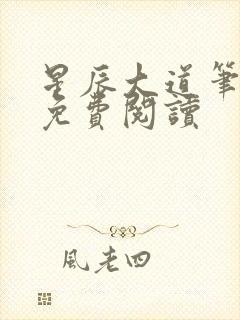 星辰大道筆
免費閱讀
風老四